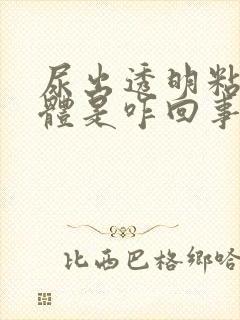 尿出透明粘
體是咋回事
比西巴格鄉哈